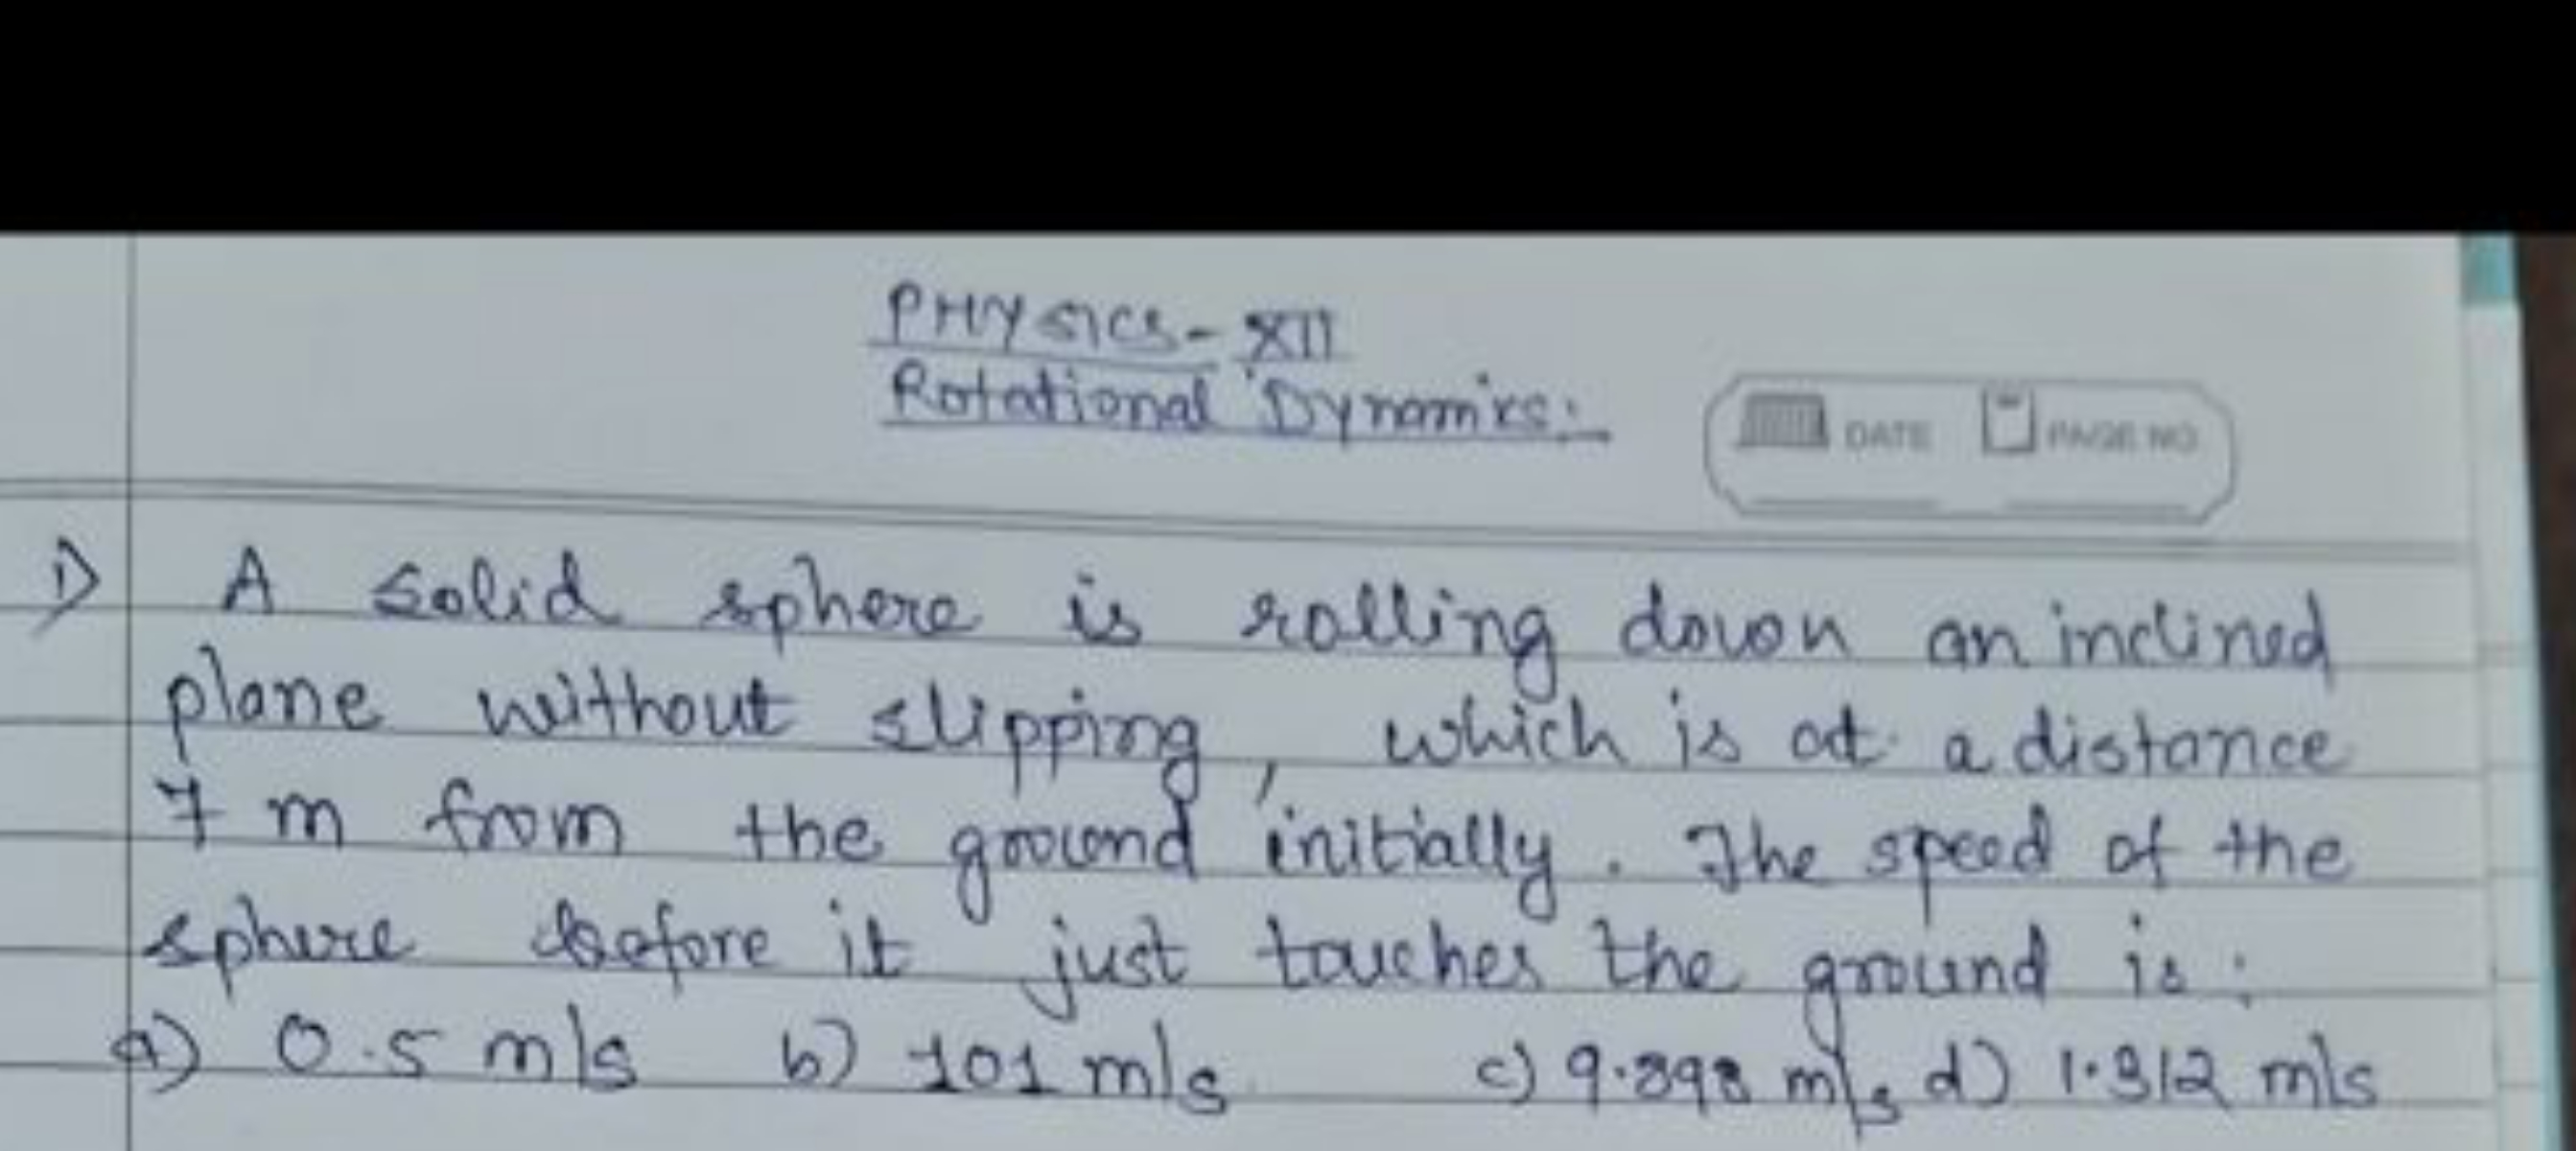 PHYSICS - XII
Rotational Dynamics:
DATE PAGE NO
1) A solid sphere is rolling down an inclined
plane without slipping, which is at a distance
7 m from the ground initially. The speed of the
sphere before it just touches the ground is:
a) 0.5 m/s b) 101 m/s c) 9.898 m/s d) 1.312 m/s